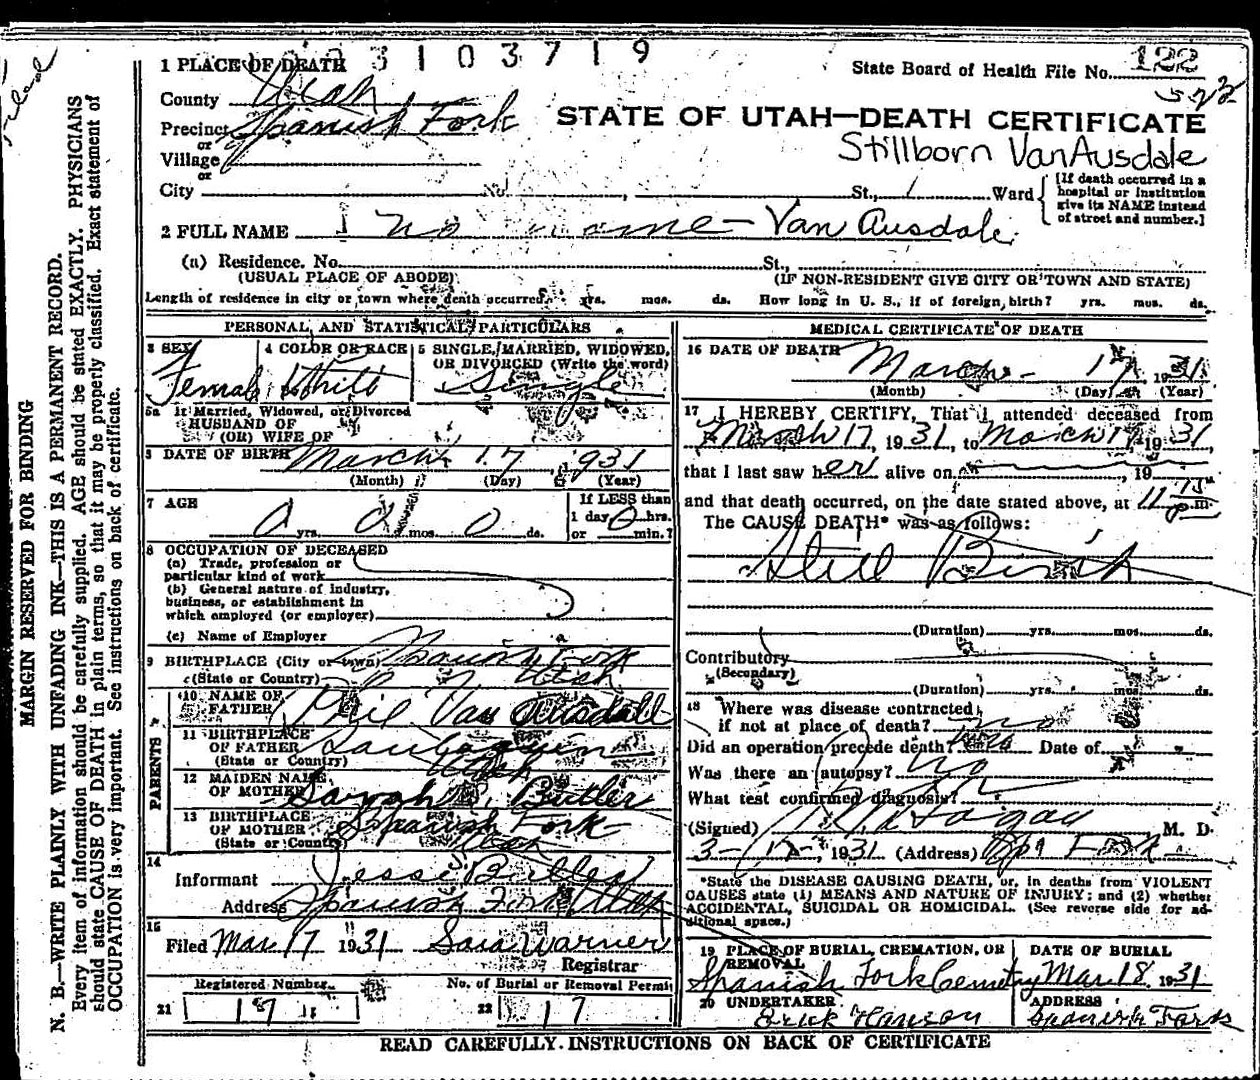 3103719
1 PLACE OF DEATH
State Board of Health File No. 122
522
County Utah
STATE OF UTAH—DEATH CERTIFICATE
Precinct Spanish Fork
or
Stillborn VanAusdale
Village
or
City No. , St., Ward
[If death occurred in a hospital or institution give its NAME instead of street and number.]
2 FULL NAME no name - Van Ausdale
(a) Residence. No. St.,
(USUAL PLACE OF ABODE) (IF NON-RESIDENT GIVE CITY OR TOWN AND STATE)
Length of residence in city or town where death occurred yrs. mos. ds. How long in U. S., if of foreign birth? yrs. mos. ds.
PERSONAL AND STATISTICAL PARTICULARS
3 SEX Female
4 COLOR OR RACE White
5 SINGLE, MARRIED, WIDOWED, OR DIVORCED (Write the word) Single
5a If Married, Widowed, or Divorced
HUSBAND OF
(OR) WIFE OF
6 DATE OF BIRTH March 17, 1931
(Month) (Day) (Year)
7 AGE 0 yrs. 0 mos. 0 ds.
If LESS than
1 day 0 hrs.
or min.?
8 OCCUPATION OF DECEASED
(a) Trade, profession or
particular kind of work
(b) General nature of industry,
business, or establishment in
which employed (or employer)
(c) Name of Employer
9 BIRTHPLACE (City or town) Spanish Fork
(State or Country) Utah
PARENTS
10 NAME OF
FATHER Phil Van Ausdall
11 BIRTHPLACE
OF FATHER Santaquin
(State or Country) Utah
12 MAIDEN NAME
OF MOTHER Sarah Butler
13 BIRTHPLACE
OF MOTHER Spanish Fork
(State or Country) Utah
14
Informant Jesse Butler
Address Spanish Fork Utah
15
Filed Mar 17 1931 Sara Warner
Registrar
Registered Number No. of Burial or Removal Permit
21 17 22 17
MEDICAL CERTIFICATE OF DEATH
16 DATE OF DEATH March 17 1931
(Month) (Day) (Year)
17 I HEREBY CERTIFY, That I attended deceased from
March 17, 1931, to March 17 1931
that I last saw her alive on , 19
and that death occurred, on the date stated above, at 11 15 p.m.
The CAUSE DEATH* was as follows:
Still Birth
(Duration) yrs. mos. ds.
Contributory
(Secondary)
(Duration) yrs. mos. ds.
18 Where was disease contracted,
if not at place of death? no
Did an operation precede death? no Date of
Was there an autopsy? no
What test confirmed diagnosis?
(Signed) M. D.
3- , 1931 (Address) Spa Fork
*State the DISEASE CAUSING DEATH, or, in deaths from VIOLENT
CAUSES state (1) MEANS AND NATURE OF INJURY; and (2) whether
ACCIDENTAL, SUICIDAL OR HOMICIDAL. (See reverse side for additional space.)
19 PLACE OF BURIAL, CREMATION, OR REMOVAL DATE OF BURIAL
Spanish Fork Cemetry Mar 18 1931
20 UNDERTAKER ADDRESS
Erick Hanson Spanish Fork
READ CAREFULLY INSTRUCTIONS ON BACK OF CERTIFICATE
MARGIN RESERVED FOR BINDING
N. B.—WRITE PLAINLY WITH UNFADING INK—THIS IS A PERMANENT RECORD.
Every item of information should be carefully supplied. AGE should be stated EXACTLY. PHYSICIANS
should state CAUSE OF DEATH in plain terms, so that it may be properly classified. Exact statement of
OCCUPATION is very important. See instructions on back of certificate.